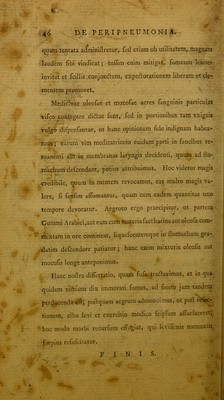 46 DE PERIPNEUMONIA.
quam tentata administretur, sed etiam ob utilitatem, magnam
laudem sibi vindicat; tussim enim mitigat, somnum leniter
invitat et facilit conjunctum, expectorationem liberam et cle-
mentem promovet.
Medicinae oleosae et mucosae acres sanguinis particulas
visco contegere dictae sunt, sed in portionibus tam exiguis
vulgo dispensantur, ut hanc opinionem fide indignam habea-
mus; earum vim medicatricem quidam parti in faucibus re-
manenti aut in membranas laryngis decidenti, quam ad sto-
machum descendant, potius attribuimus. Hoc videtur magis
credibile, quum in memoriam revocamus, eas multo magis va-
lere, si sensim assumantur, quam cum eadem quantitas uno
tempore devoratur. Aegroto ergo praecipitur, ut partem
Gummi Arabici, aut eam cum materia saccharina aut oleosa com-
mixtam in ore contineat, liquescentemque in stomachum gra-
datim descendere patiatur; hanc enim mixturis oleosis aut
mucosis longe anteponimus.
Hanc nostra dissertatio, quam fuse tractavimus, et in qua
quidem nimium diu immorati sumus, ad finem jam tandem
perducenda est; postquam aegrum admonuimus, ut post
cibo levi et exercitio modico seipsum assuefaceret,
hoc modo morbi recursum effugiat, qui levissimis momentis
saepius resuscitatur.
F I N I S.